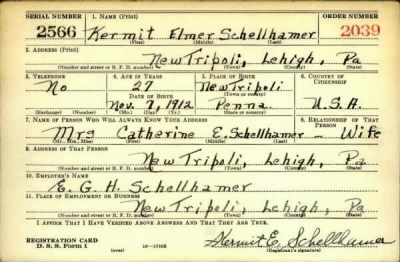 SERIAL NUMBER 1. NAME (Print) ORDER NUMBER
2566 Kermit Elmer Schellhamer 2039
(First) (Middle) (Last)
2. ADDRESS (Print)
New Tripoli, Lehigh, Pa
(Number and street or R. F. D. number) (Town) (County) (State)
3. TELEPHONE 4. AGE IN YEARS 5. PLACE OF BIRTH 6. COUNTRY OF CITIZENSHIP
No 27 New Tripoli
DATE OF BIRTH (Town or county)
Nov. 7, 1912 Penna. U.S.A.
(Exchange) (Number) (Mo.) (Day) (Yr.) (State or country)
7. NAME OF PERSON WHO WILL ALWAYS KNOW YOUR ADDRESS 8. RELATIONSHIP OF THAT PERSON
Mrs Catherine E. Schellhamer — Wife
(Mr., Mrs., Miss) (First) (Middle) (Last)
9. ADDRESS OF THAT PERSON
New Tripoli, Lehigh, Pa
(Number and street or R. F. D. number) (Town) (County) (State)
10. EMPLOYER'S NAME
E. G. H. Schellhamer
11. PLACE OF EMPLOYMENT OR BUSINESS
New Tripoli, Lehigh, Pa
(Number and street or R. F. D. number) (Town) (County) (State)
I AFFIRM THAT I HAVE VERIFIED ABOVE ANSWERS AND THAT THEY ARE TRUE.
REGISTRATION CARD Kermit E. Schellhamer
D. S. S. Form 1 (over) (Registrant's signature)